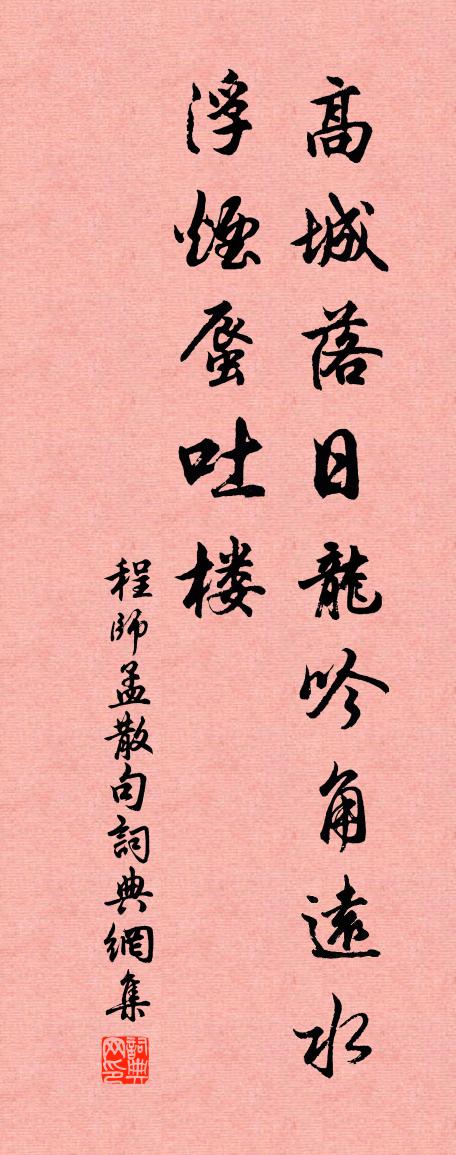 高城落日龍吟角遠水
浮煙蜃吐楼
程師孟散句詞典網集
詞典网印